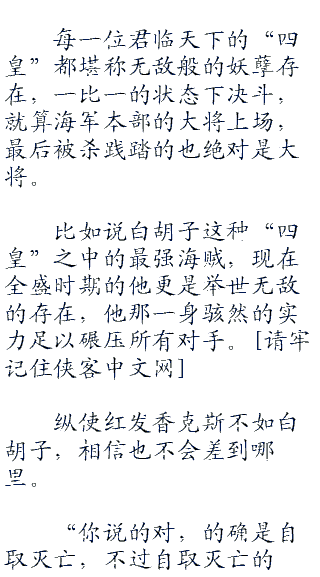 每一位君临天下的“四
皇”都堪称无敌般的妖孽存
在，一比一的状态下决斗，
就算海军本部的大将上场，
最后被杀践踏的也绝对是大
将。
比如说白胡子这种“四
皇”之中的最强海贼，现在
全盛时期的他更是举世无敌
的存在，他那一身骇然的实
力足以碾压所有对手。[请牢
记住侠客中文网]
纵使红发香克斯不如白
胡子，相信也不会差到哪
里。
“你说的对，的确是自
取灭亡，不过自取灭亡的